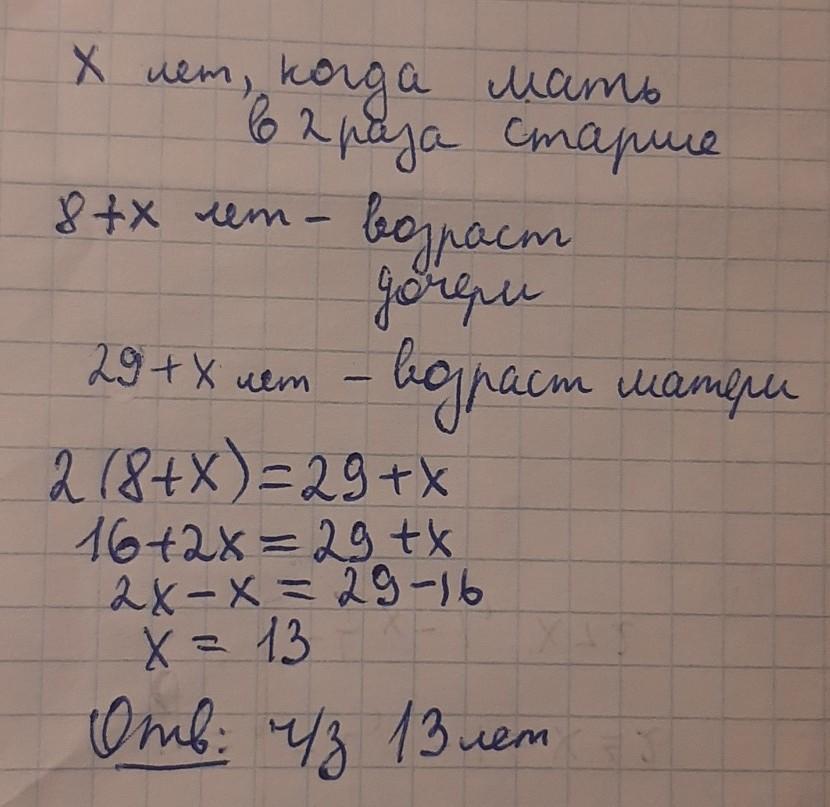 х лет, когда мать
в 2 раза старше
8+х лет – возраст
дочери
29+х лет – возраст матери
2(8+х)=29+х
16+2х=29+х
2х-х=29-16
х=13
Отв: ч/з 13 лет